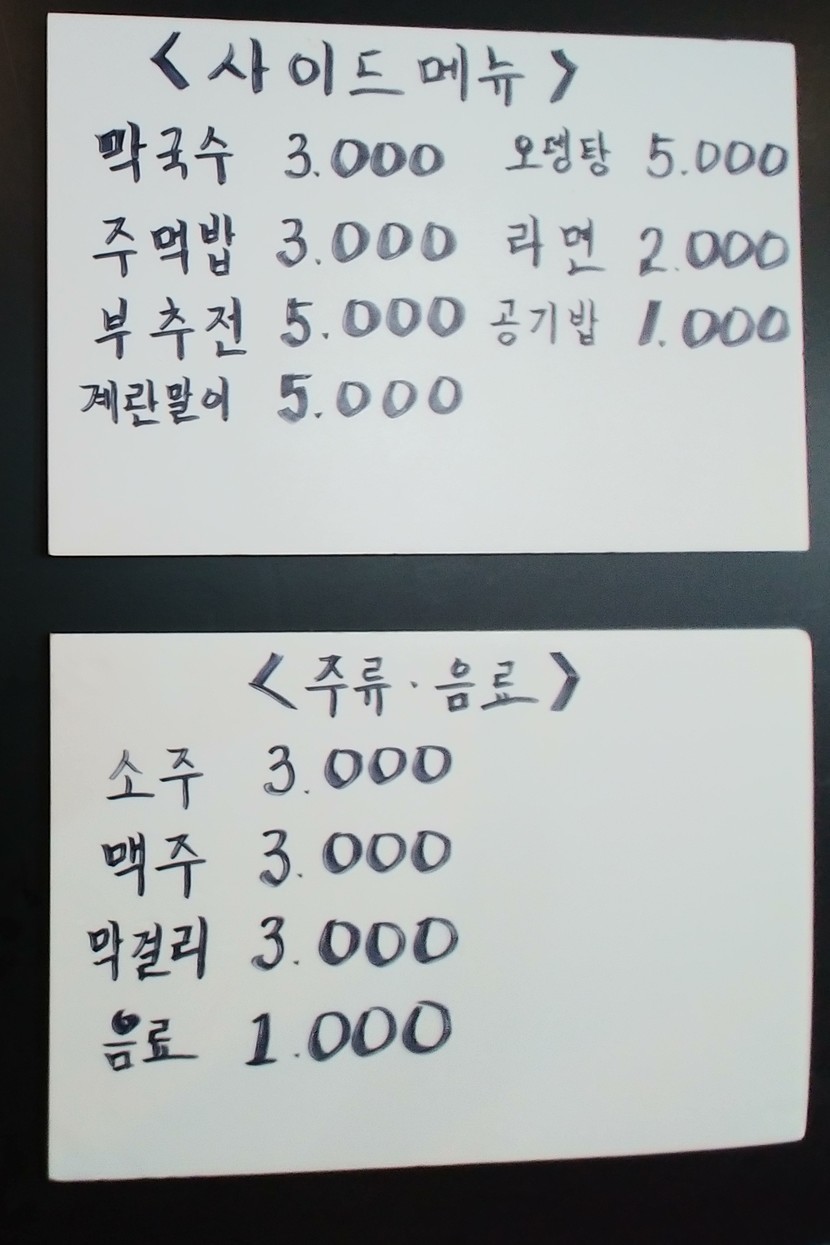 <사이드메뉴>
막국수 3.000 오뎅탕 5.000
주먹밥 3.000 라면 2.000
부추전 5.000 공기밥 1.000
계란말이 5.000
<주류·음료>
소주 3.000
맥주 3.000
막걸리 3.000
음료 1.000